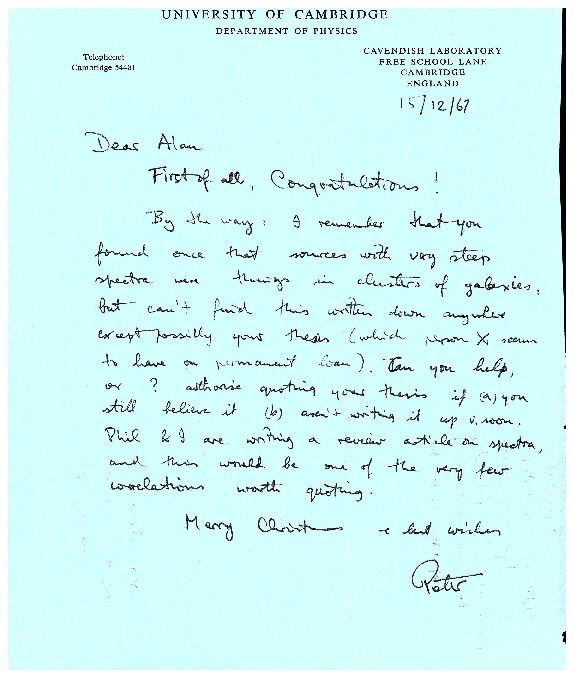 UNIVERSITY OF CAMBRIDGE
DEPARTMENT OF PHYSICS
Telephone:
Cambridge 54481
CAVENDISH LABORATORY
FREE SCHOOL LANE
CAMBRIDGE
ENGLAND
15/12/67
Dear Alan
First of all, Congratulations!
By the way: I remember that you
found once that sources with very steep
spectra were things in clusters of galaxies,
but can't find this written down anywhere
except possibly your thesis (which person X seems
to have on permanent loan). Can you help,
or ? authorise quoting your thesis if (a) you
still believe it (b) aren't writing it up v. soon.
Phil & I are writing a review article on spectra,
and this would be one of the very few
correlations worth quoting.
Merry Christmas & best wishes
Peter